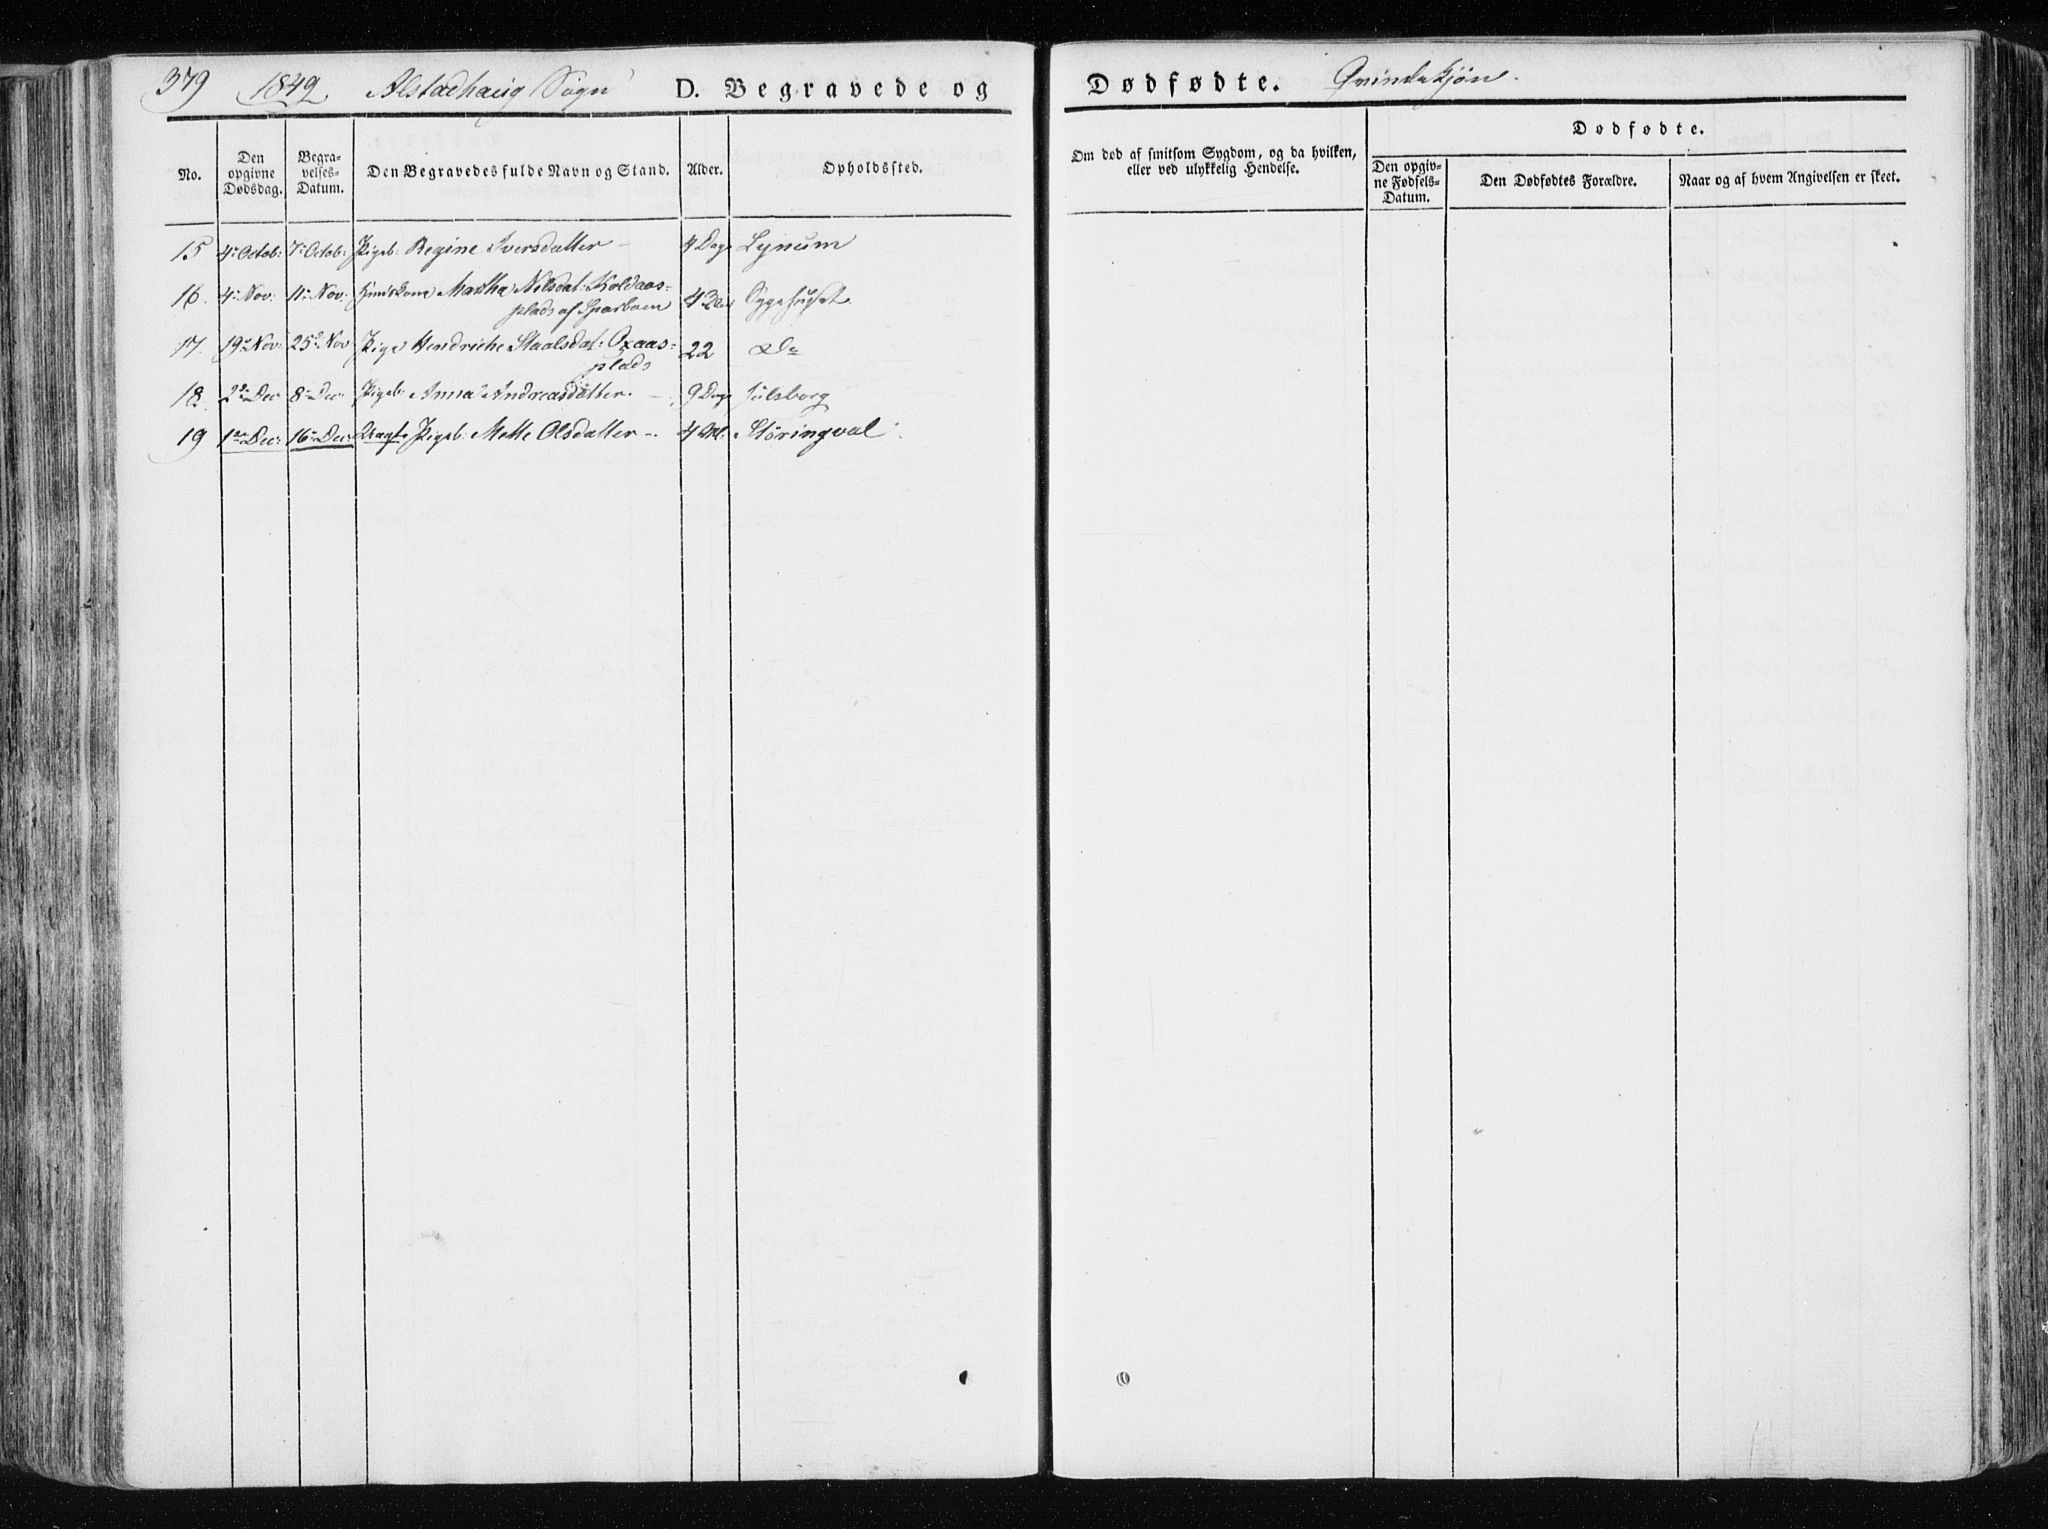 379 1849 Alstadhaug Sogn D. Begravede og Dødfødte. Qvindekjøn.
No.
Den opgivne Dødsdag.
Begra-
velses-
Datum.
Den Begravedes fulde Navn og Stand.
Alder.
Opholdssted.
Om død af smitsom Sygdom, og da hvilken,
eller ved ulykkelig Hendelse.
Dødfødte.
Den opgiv-
ne Fødsels-
Datum.
Den Dødfødtes Forældre.
Naar og af hvem Angivelsen er skeet.
15 4de Octob: 7de Octob: Pigeb: Regine Iversdatter – 4 Dage Lynum
16. 4de Nov: 11te Nov: Huuskone Martha Nilsdat: Koldaas=
plads af Sparboen 43 Sygehuset
17. 19de Nov: 25de Nov Pige Hendriche Staalsdat: Oxaas=
plads 22 Do
18. 2den Dec 8de Dec: Pigeb: Anna Andreasdatter. – 9 Dage Julsborg
19 1ste Dec: 16de Dec: Uægte Pigeb: Mette Olsdatter –. 4 Md: Storingval.